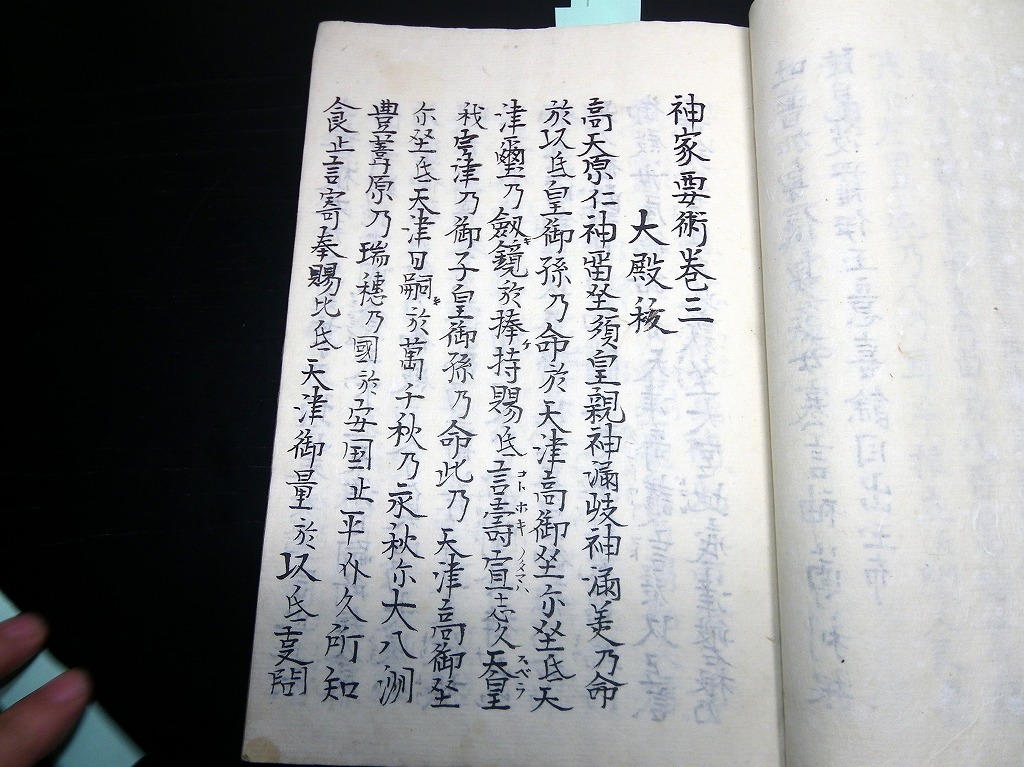 神家要術巻三
大殿祓
高天原仁神留坐須皇親神漏岐神漏美乃命
於以氐皇御孫乃命於天津高御坐尓坐氐天
津璽乃劔鏡於捧持賜氐言壽宣志久天皇
我宇津乃御子皇御孫乃命此乃天津高御坐
尓坐氐天津日嗣於萬千秋乃永秋尓大八洲
豊葦原乃瑞穂乃國於安国止平介久所知
食止言寄奉賜比氐天津御量於以氐事問